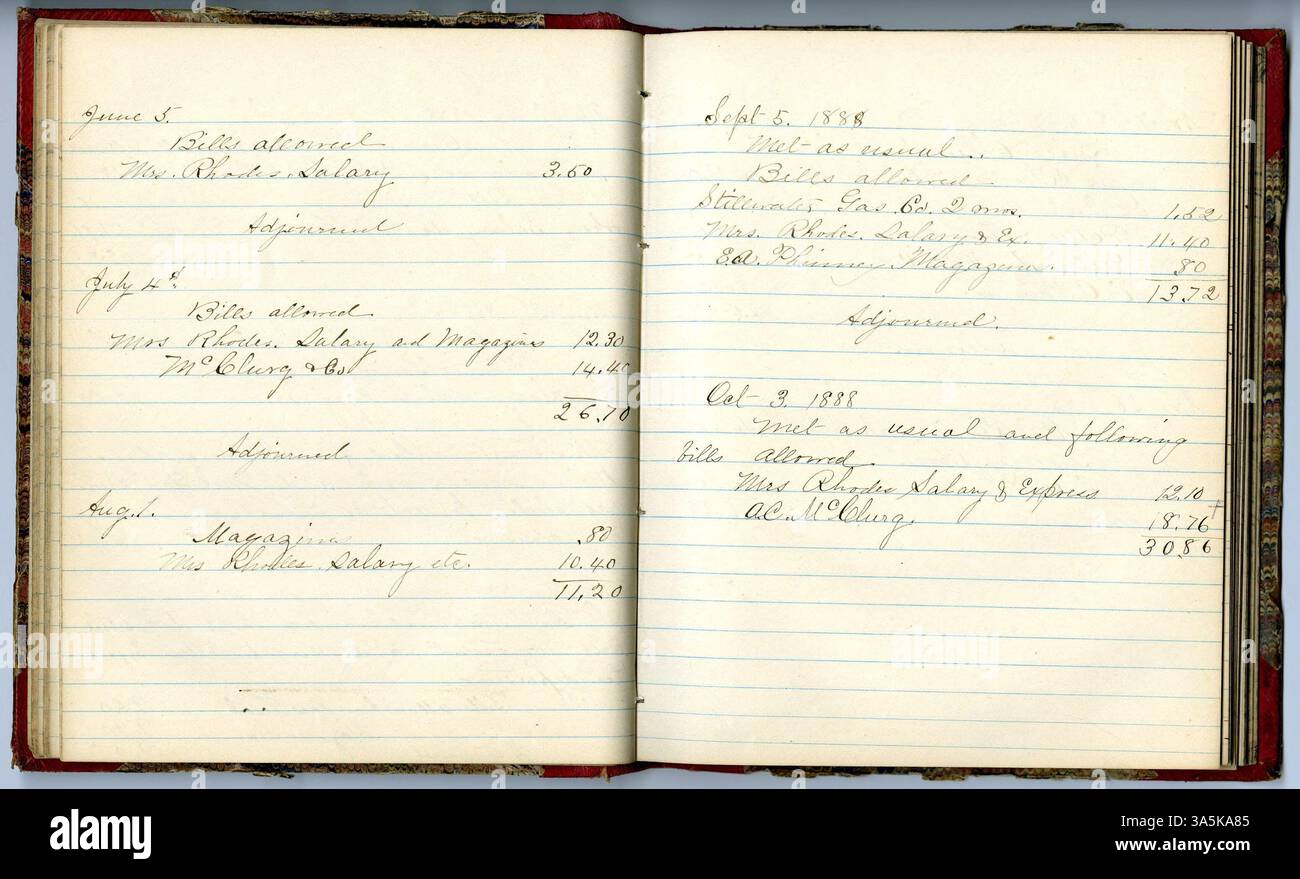 June 5.
Bills allowed
Mrs. Rhodes. Salary 3.50
Adjourned
July 4th
Bills allowed.
Mrs Rhodes. Salary ad Magazines 12.30
McClurg & Co 14.40
26.70
Adjourned
Aug. 1.
Magazines .80
Mrs Rhodes. Salary etc. 10.40
11.20
Sept 5. 1888
Met as usual..
Bills allowed
Stillwater Gas. Co. 2 mos. 1.52
Mrs. Rhodes. Salary & Ex. 11.40
E.A. Phinney. Magazines. 80
13.72
Adjourned.
Oct 3. 1888
Met as usual and following
bills allowed
Mrs Rhodes Salary & Express 12.10
A.C. McClurg. 18.76
30.86
alamy
alamy
Image ID: A3A5KA85
www.alamy.com